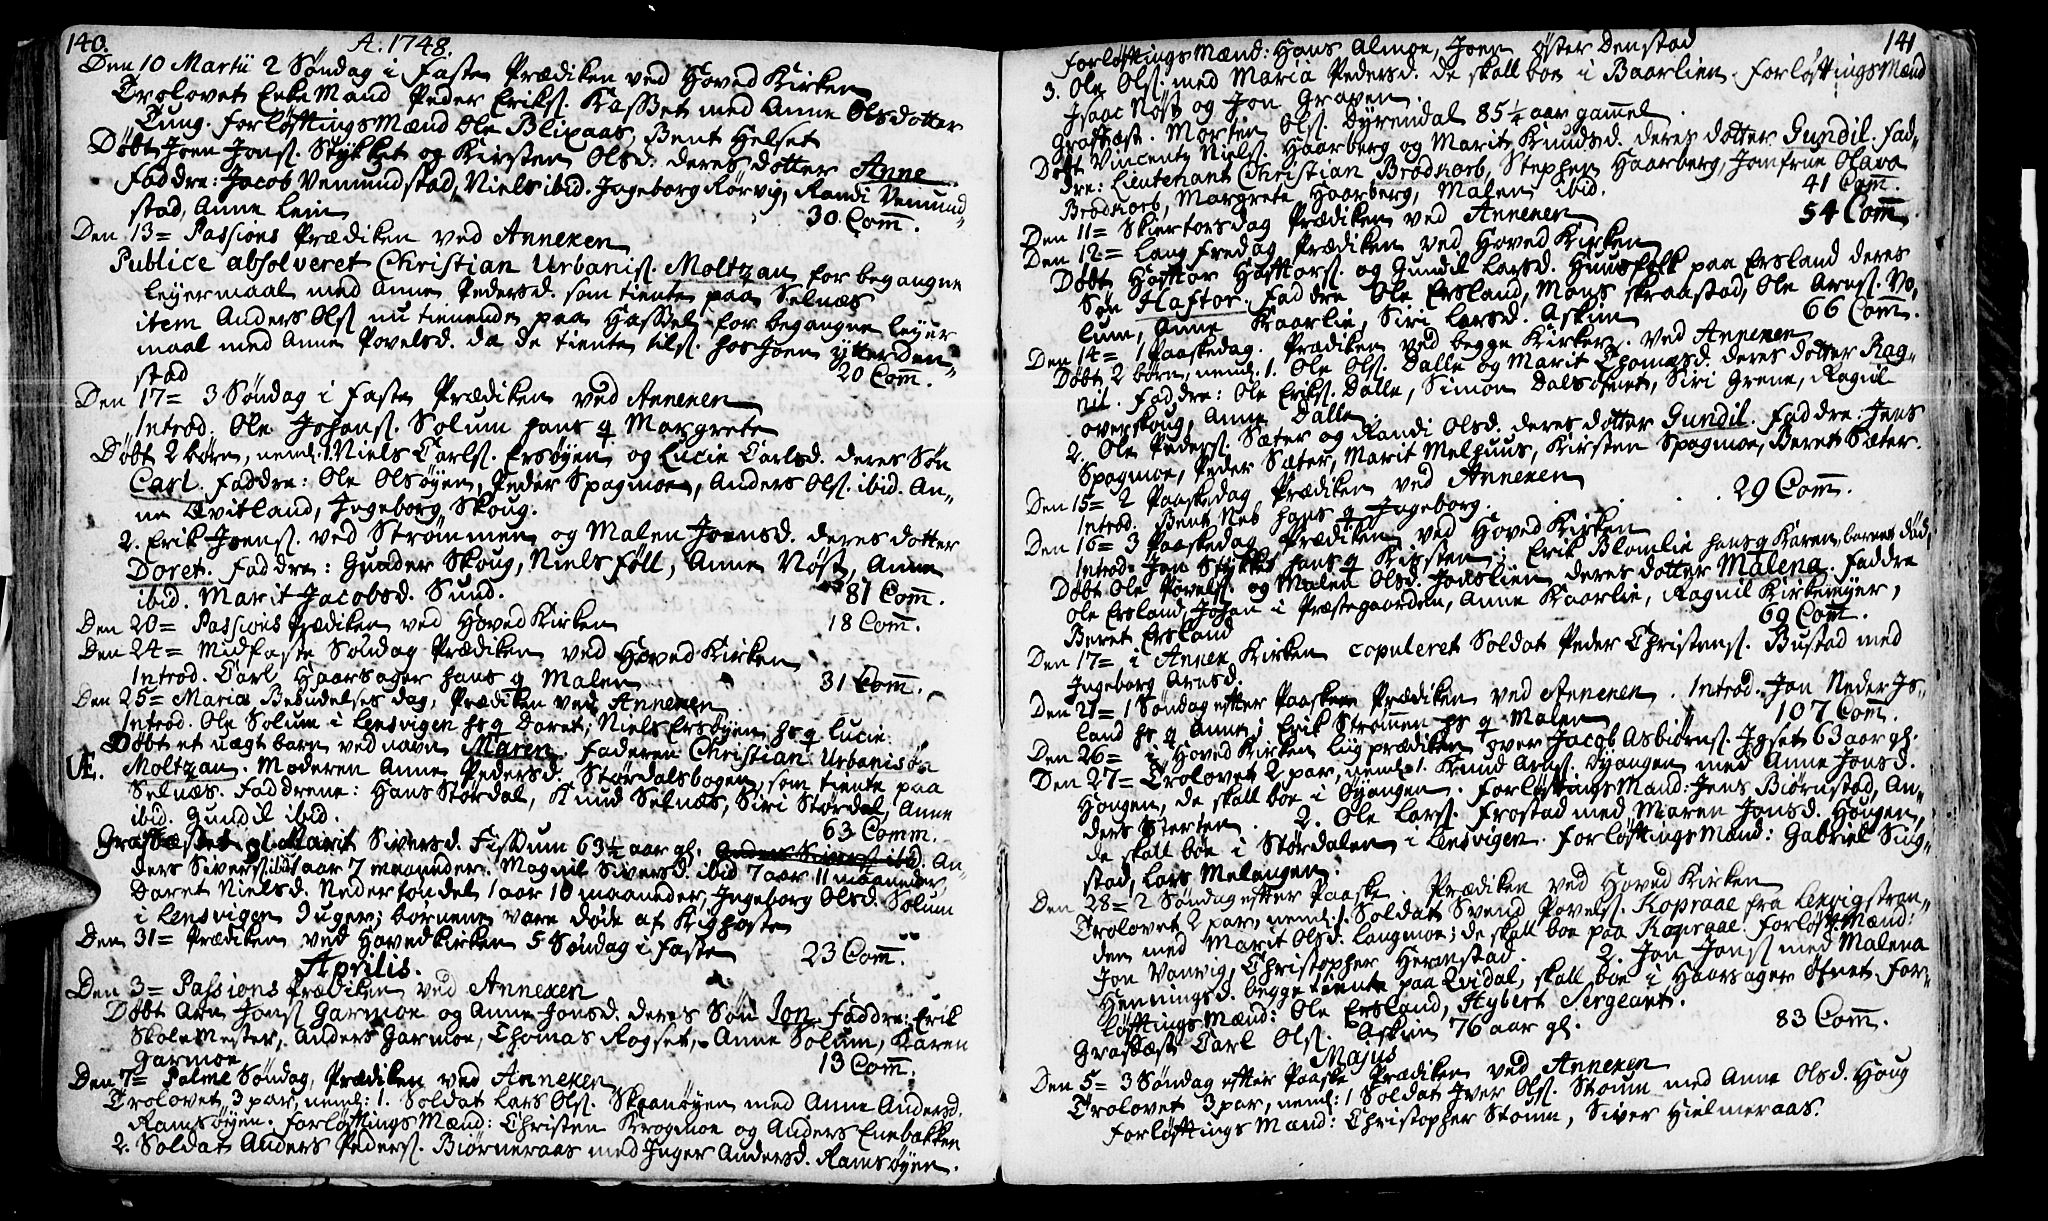 140.
A. 1748.
Den 10 Martii 2 Søndag i Faste Prædiken ved Hoved Kirken
Trolovet Enke Mand Peder Eriks. Kasset med Anne Olsdotter
Tung. Forløftings Mænd Ole Blixaas, Bent Helset
Døbt Joen Jons. Stykket og Kirsten Olsd. deres dotter Anne
Faddre: Jacob Vemundstad, Niels ibid. Ingeborg Rørvig, Randi Vemund-
stad, Anne Lein
30 Com̄.
Den 13= Passions Prædiken ved Annexen
Publice absolveret Christian Urbanis. Moltzan for begangne
leyermaal med Anne Pedersd. som tiente paa Selnæs
item Anders Ols. nu tienende paa Hassel for begangne leyer
maal med Anne Povelsd. da de tiente tils. hos Joen ytter Den-
stad
20 Com̄.
Den 17= 3 Søndag i Faste Prædiken ved Annexen
Introd. Ole Johans. Solum hans q Margrete
Døbt 2 børn, neml: 1. Niels Carls. Ersøyen og Lucie Carlsd. deres Søn
Carl. Faddre: Ole Olsøyen, Peder Spagmoe, Anders Ols. ibid. An-
ne Qvitland, Ingeborg Skoug.
2. Erik Joens. ved Strømmen og Malen Joensd. deres dotter
Doret. Faddre: Gunder Skoug, Niels Föll, Anne Nøst, Anne
ibid. Marit Jacobsd. Sund.
81 Com̄.
Den 20= Passions Prædiken ved Hoved Kirken
18 Com̄.
Den 24= Midfaste Søndag Prædiken ved Hoved Kirken
Introd. Carl Haarsager hans q Malen
31 Com̄.
Den 25= Mariæ Bebudelses dag, Prædiken ved Annexen
Introd. Ole Solum i Lensvigen hs q Doret, Niels Ersøyen hs q Lucie.
Døbt et uægt barn ved navn Maren. Faderen Christian Urbanisøn
Æ. Moltzan. Moderen Anne Pedersd. Størdalsbogen, som tiente paa
Selnæs. Faddrene: Hans Størdal, Knud Selnæs, Siri Størdal, Anne
ibid. Gundil ibid.
63 Comm.
Grafsæstet gl. Marit Siversd. Fissum 63½ aar gl. Anders Sivers. ibid. An-
ders Sivers. ibid 1 aar 7 maaneder. Magnil Siversd. ibid 7 aar 11 maaneder,
Doret Nielsd. Nedertøndel 1 aar 10 maaneder, Ingeborg Olsd. Solum
i Lensvigen 3 uger; børnene vare døde af Kighoste
Den 31= Prædiken ved Hovedkirken 5 Søndag i Faste
23 Com̄.
Aprilis.
Den 3= Passions Prædiken ved Annexen
Døbt Arn Jons. Garmoe og Anne Jonsd. deres Søn Jon. Faddre: Erik
Skolemester, Anders Garmoe, Thomas Rogset, Anne Solum, Karen
Garmoe
13 Com̄.
Den 7= Palme Søndag, Prædiken ved Annexen
Trolovet 3 par, neml: 1. Soldat Lars Ols. Skaanøyen med Anne Andersd.
Ramsøyen. Forløftings Mænd: Christen Krogmoe og Anders Enebakken
2. Soldat Anders Peders. Biørneraas med Inger Andersd. Ramsøyen.
141
Forløftings Mænd: Hans Almoe, Joen øster Denstad
3. Ole Ols. med Maria Pedersd. de skall boe i Baarlien. Forløftings Mænd
Isaac Nøst og Jon Graven.
Grafsæst. Morten Ols. Dyrendal 85¼ aar gammel.
Døbt Vincentz Niels. Haarberg og Marit Knudsd. deres dotter Gundil. Fad-
dre: Lieutenant Christian Brodkorb, Stephen Haarberg, Jomfrue Olava
Brodkorb, Margrete Haarberg, Malen ibid.
41 Com̄.
Den 11= Skiertorsdag Prædiken ved Annexen
54 Com̄
Den 12= Lang Fredag Prædiken ved Hoved Kirken
Døbt Hafftor Hafftors. og Gundil Larsd. Huusfolk paa Ersland deres
Søn Haftor. Faddre Ole Ersland, Mons Skraastad, Ole Arns. Vo-
lum, Anne Kaarlie, Siri Larsd. Askim
66 Com̄.
Den 14= 1 Paaskedag. Prædiken ved begge Kirker. ved Annexen
Døbt 2 børn, neml: 1. Ole Ols. Dalle og Marit Thomæsd. deres dotter Rag-
nil. Faddre: Ole Eriks. Dalle, Simon Dalsøfnet, Siri Grene, Ragnil
overskoug, Anne Dalle.
2. Ole Peders. Sæter og Randi Olsd. deres dotter Gundil. Faddre: Jens
Spagmoe, Peder Sæter, Marit Melhuus, Kirsten Spagmoe, Beret Sæter.
Den 15= 2 Paaskedag Prædiken ved Annexen
29 Com̄.
Introd. Bent Nes hans q Ingeborg.
Den 16= 3 Paaskedag Prædiken ved Hoved Kirken
Introd. Jon Stykket hans q Kirsten; Erik Blomlie hans q Karen, barnet död,
Døbt Ole Povels. og Malen Olsd. Jonslien deres dotter Malena. Faddre
Ole Ersland, Johan i Præstegaarden, Anne Kaarlie, Ragnil Kirkemyer,
Beret Ersland
69 Com̄.
Den 17= i Annex Kirken copuleret Soldat Peder Christens. Bustad med
Ingeborg Arnsd.
Den 21= 1 Søndag etter Paasken Prædiken ved Annexen. Introd. Jon Neder Is-
land hs q Anne; Erik Strømen hs q Malen
107 Com̄.
Den 26= i Hoved Kirken liigprædiken over Jacob Asbiørns. Igset 63 aar gl.
Den 27= Trolovet 2 par, neml: 1. Knud Arns. Øyangen med Anne Jonsd.
Hongen, de skall boe i Øyangen. Forløftings Mænd: Jens Biørnstad, An-
ders Sterten. 2. Ole Lars. Frostad med Maren Jonsd. Hongen,
de skall boe i Størdalen i Lensvigen. Forløftings Mænd: Gabriel Siig-
stad, Lars Melangen.
Den 28= 2 Søndag etter Paaske. Prædiken ved Hoved Kirken
Trolovet 2 par, neml: 1. Soldat Svend Povels. Kopraae fra Lexvigstran-
den med Marit Olsd. Langmoe; de skall boe paa Kopraae. Forløft: Mænd:
Jon Vanvig, Christopher Hermstad. 2. Jon Jons. med Malena
Henningsd. begge tiente paa Qvidal, skall boe i Haarsager øfnet. For-
løftings Mænd: Ole Ersland, Hybert Sergeant.
Grafsæst Carl Ols. Askim 76 aar gl.
83 Com̄.
Majus
Den 5= 3 Søndag etter Paaske Prædiken ved Annexen
Trolovet 3 par, neml: 1 Soldat Iver Ols. Stoum med Anne Olsd. Houg
Forløftings Mænd: Christopher Stoum, Siver Hielmeraas.